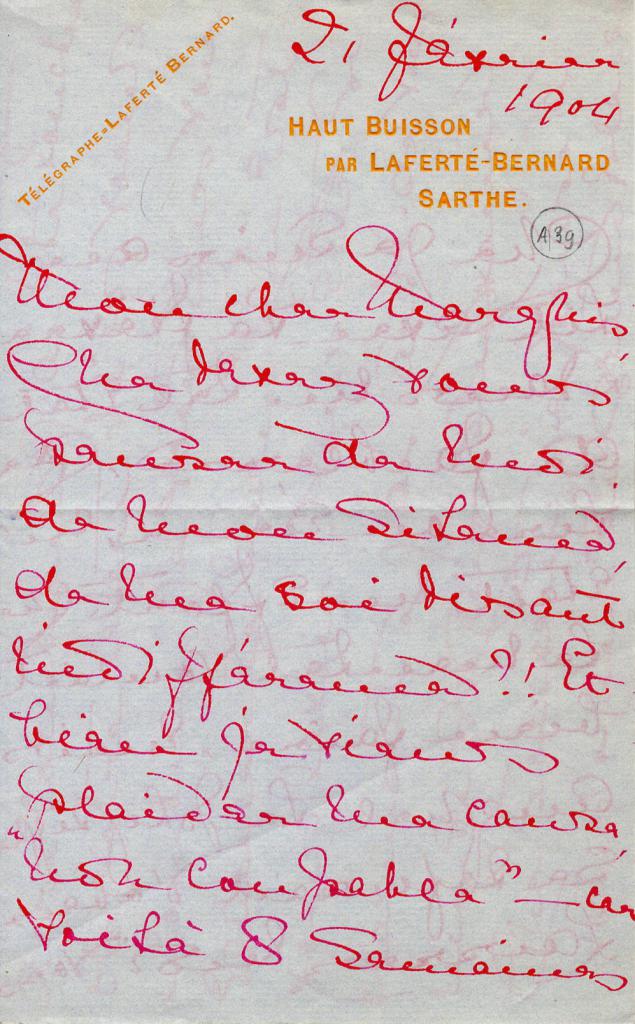 21 février
1904
TÉLÉGRAPHE=LAFERTÉ BERNARD.
HAUT BUISSON
PAR LAFERTÉ-BERNARD
SARTHE.
A39
Mon cher Marquis,
Que devez vous
penser de moi,
de mon silence,
de ma soi disant
indifférence?!! Et
bien je viens
plaider ma cause,
"non coupable" — car
voilà 8 semaines